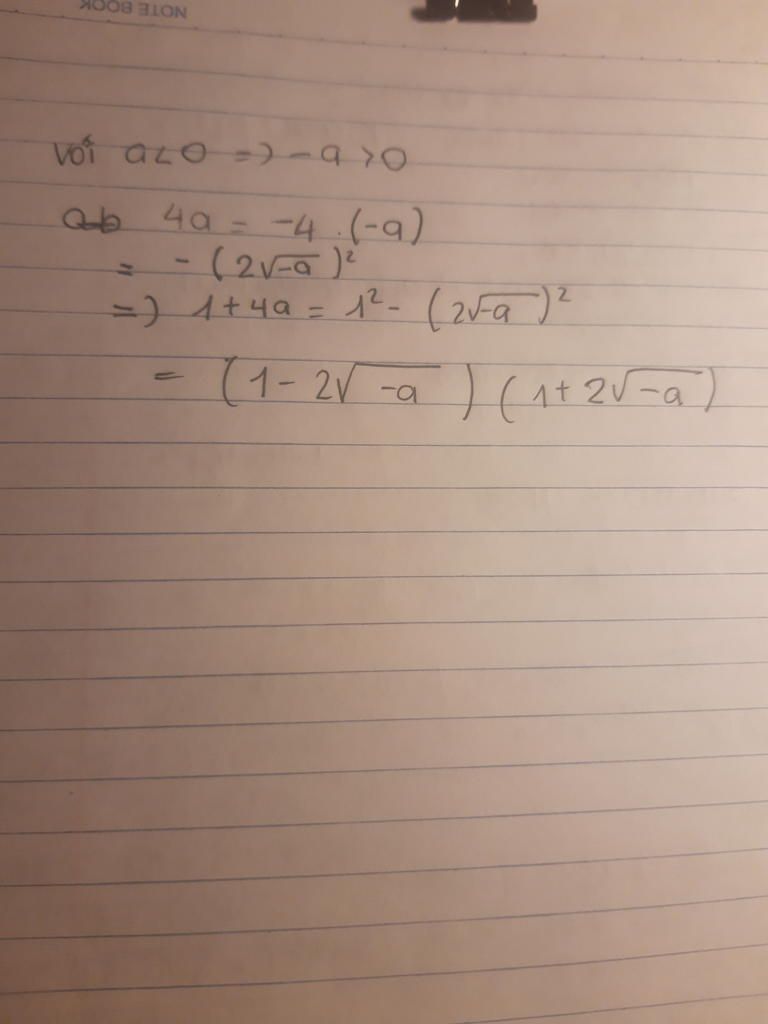 NOTE BOOK
Với a<0 => -a >0
ab 4a = -4 .(-a)
= - (2√-a)²
=> 1+4a = 1² - (2√-a)²
= (1 - 2√-a) (1+2√-a)